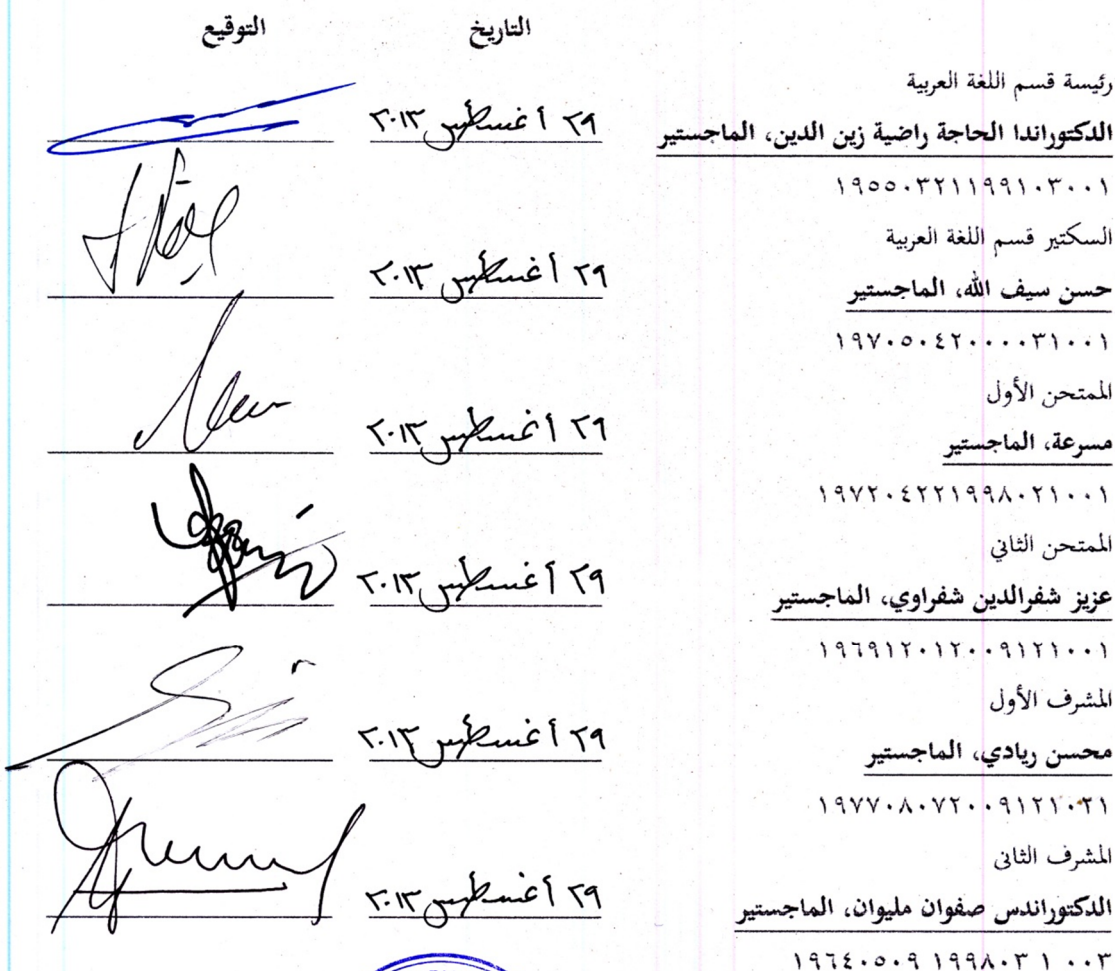 التاريخ التوقيع
رئيسة قسم اللغة العربية
الدكتوراندا الحاجة راضية زين الدين، الماجستير ٢٩ أغسطس ٢٠١٣
١٩٥٥٠٣٢١١٩٩١٠٣٠٠١
السكتير قسم اللغة العربية
حسن سيف الله، الماجستير ٢٩ أغسطس ٢٠١٣
١٩٧٠٥٠٤٢٠٠٠٠٣١٠٠١
الممتحن الأول
مسرعة، الماجستير ٢٩ أغسطس ٢٠١٣
١٩٧٢٠٤٢٢١٩٩٨٠٢١٠٠١
الممتحن الثاني
عزيز شفرالدين شفراوي، الماجستير ٢٩ أغسطس ٢٠١٣
١٩٦٩١٢٠١٢٠٠٩١٢١٠٠١
المشرف الأول
محسن ريادي، الماجستير ٢٩ أغسطس ٢٠١٣
١٩٧٧٠٨٠٧٢٠٠٩١٢١٠٢١
المشرف الثانى
الدكتوراندس صفوان مليوان، الماجستير ٢٩ أغسطس ٢٠١٣
١٩٦٤٠٥٠٩ ١٩٩٨٠٣ ١ ٠٠٣